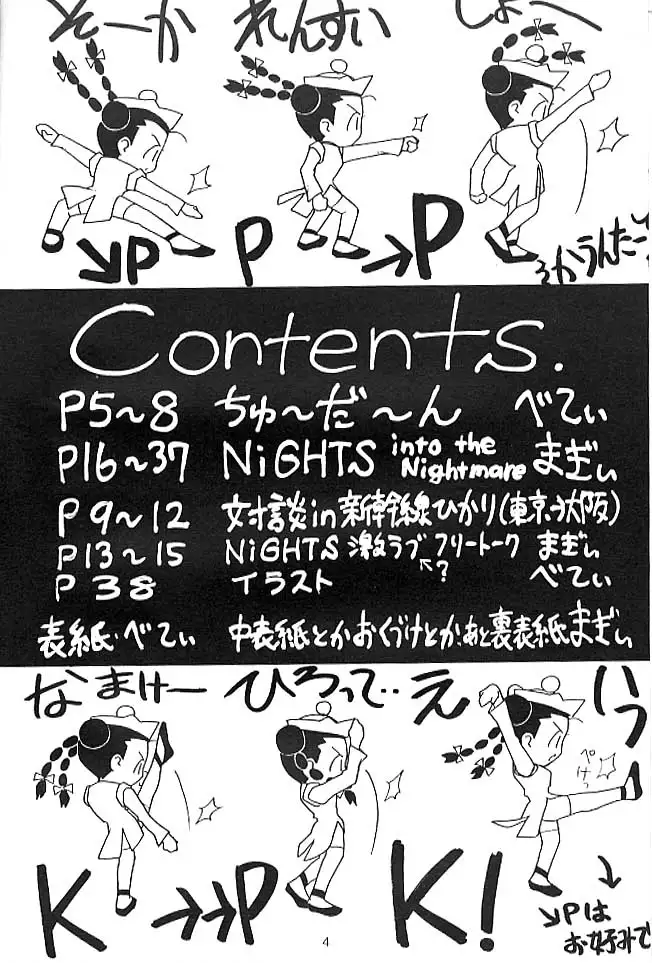 そーか れんすい しょへ
↘P P →P
ろかうんたー
Contents.
P5~8 ちゅ~だ~ん べてぃ
P16~37 NiGHTS into the Nightmare まぎぃ
P9~12 対談in新幹線ひかり(東京→大阪)
P13~15 NiGHTS 激ラブ フリートーク まぎぃ
↖?
P38 イラスト べてぃ
表紙・べてぃ 中表紙とかおくづけとか、あと裏表紙まぎぃ
なまけー ひろって‥ え いっ
ぺけっ
K →→P K!
↓
↘Pは
お好みで
4